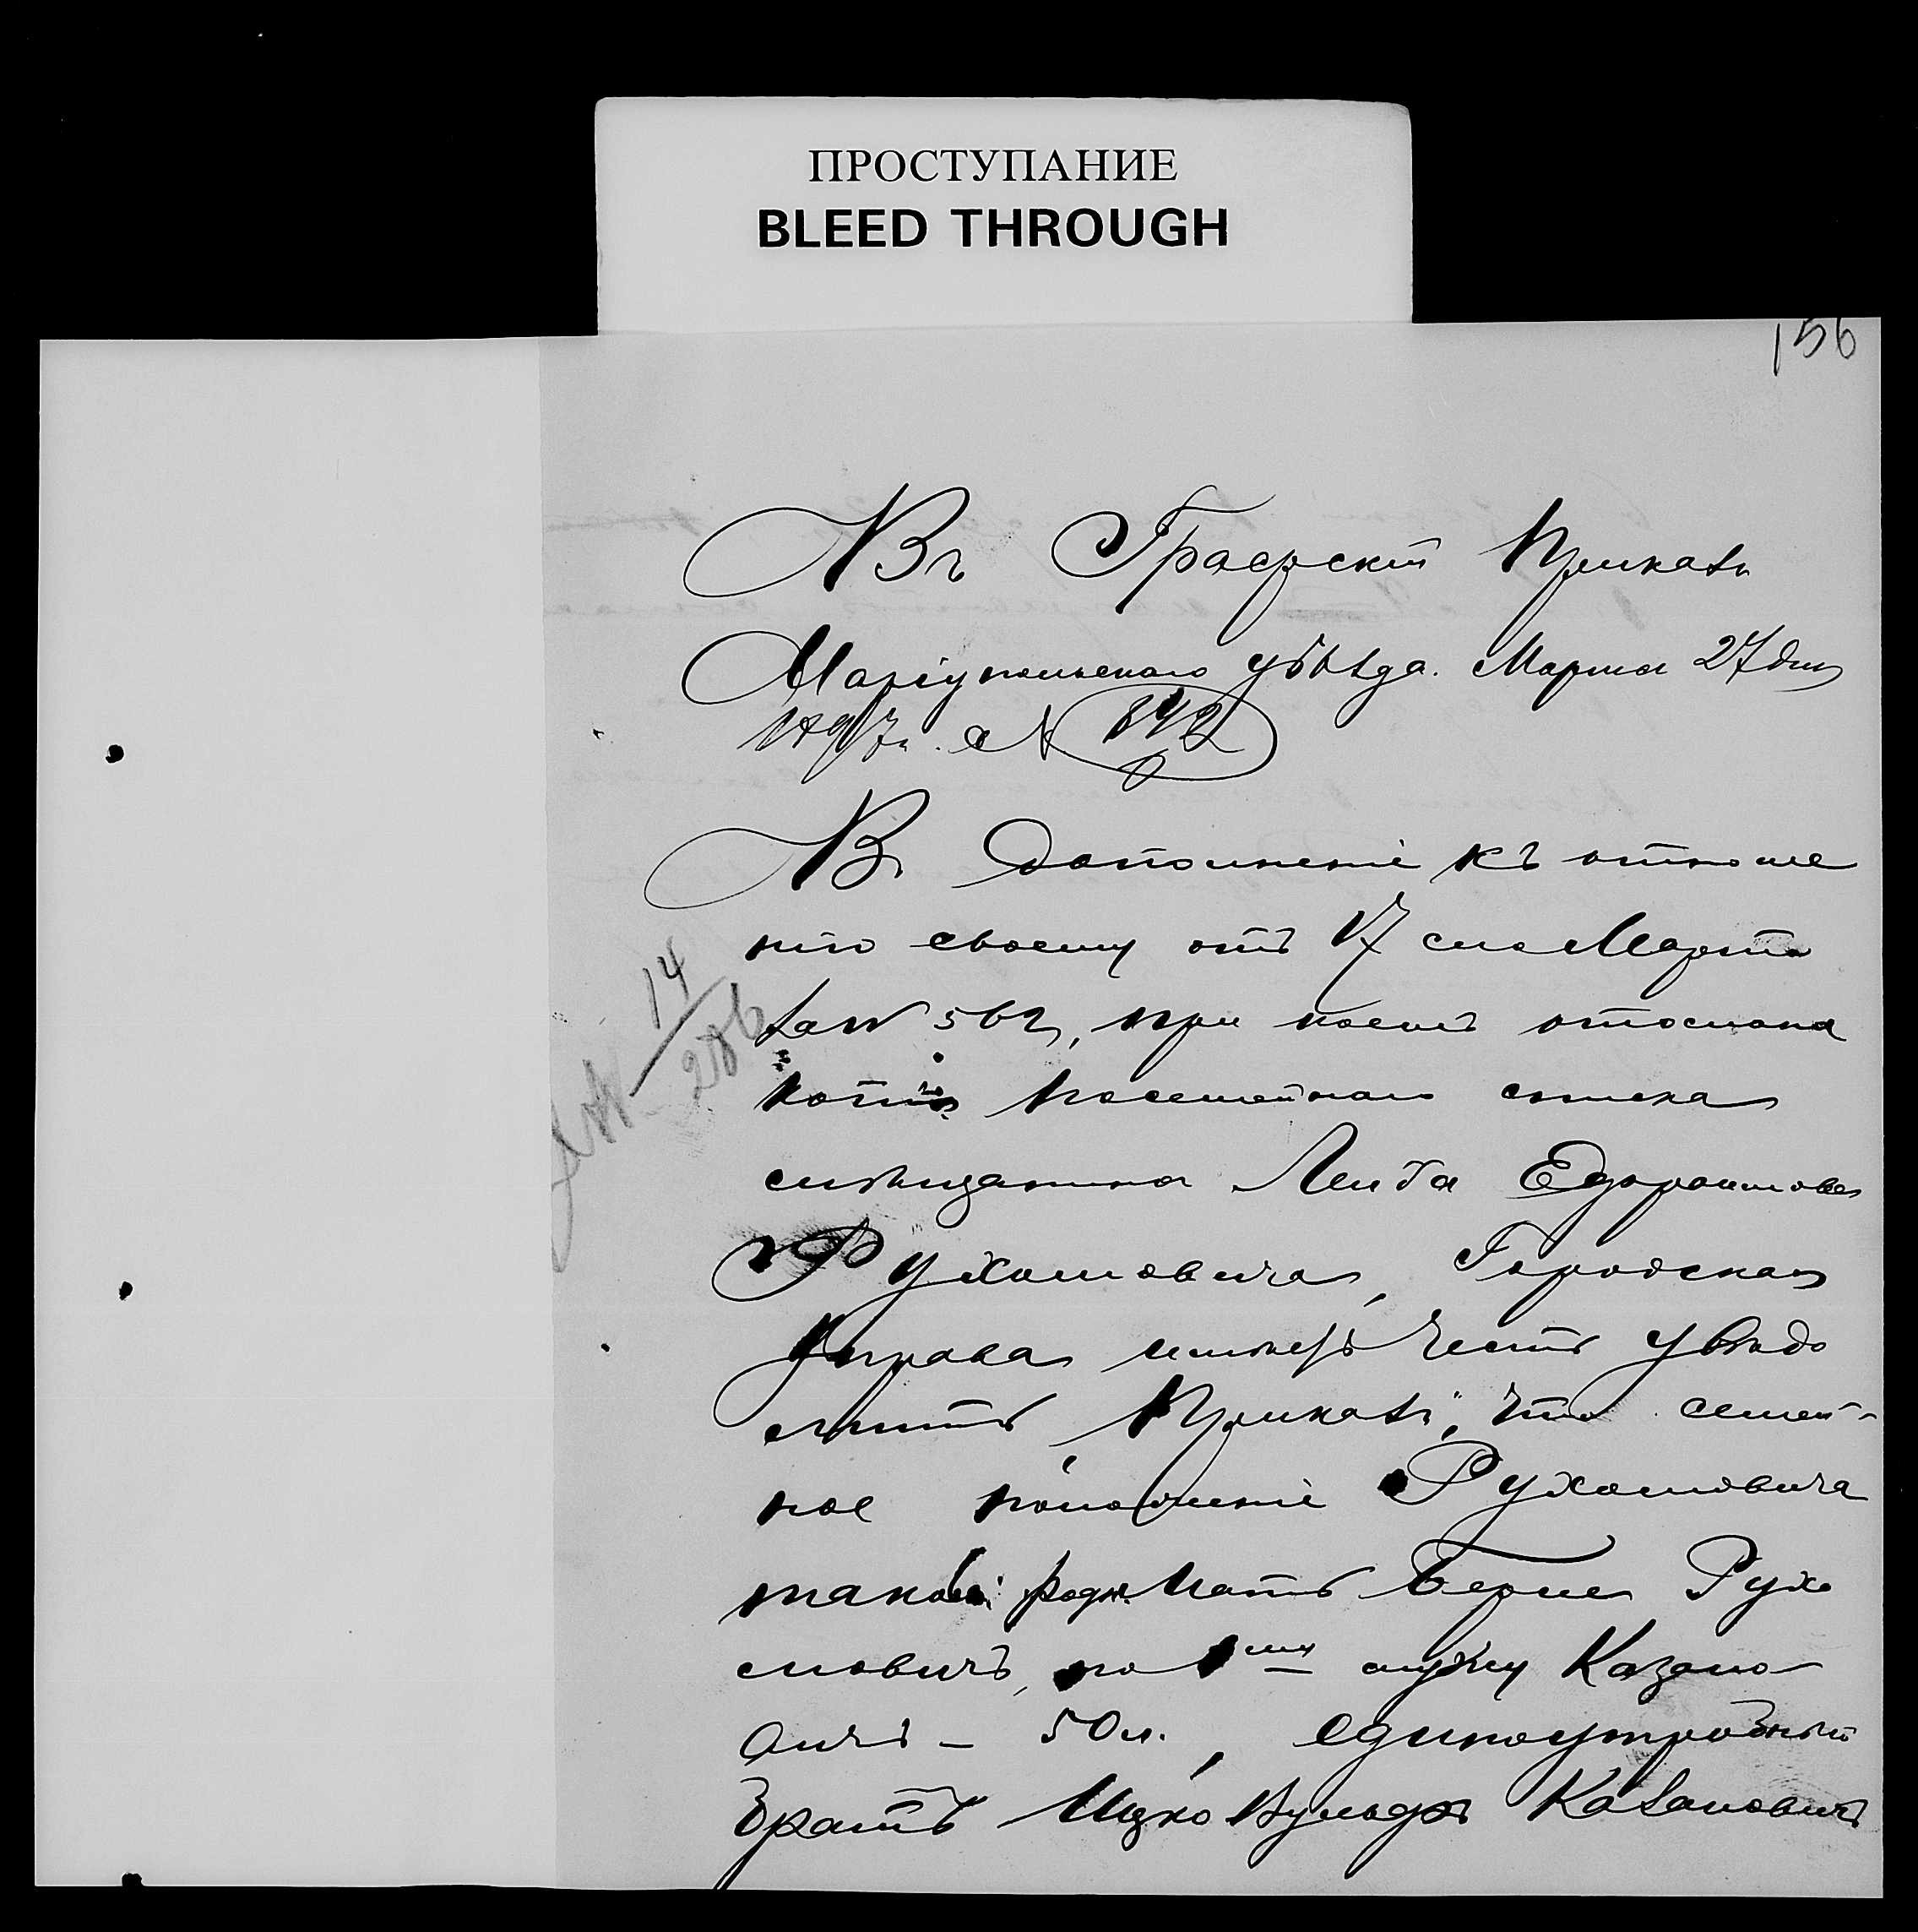 ПРОСТУПАНИЕ
BLEED THROUGH
156
Въ Графскій Приказъ
Маріупольскаго уѣзда. Марта 27 дня
1897 г. № 842
Въ дополненіе къ отноше
нію своему отъ 17 сего Марта
за № 562, при коемъ отослана
14
286
копія посемейнаго списка
мѣщанина Лейба Ефроимова
Рухомовича, Городская
Управа имѣетъ честь увѣдо
мить Приказъ, что семей-
ное положеніе Рухомовича
таково: родн. мать Берша Рухо
мовичъ, по 1му мужу Казано
вичъ - 50 л., единоутробный
братъ Ицко Вульфъ Казановичъ